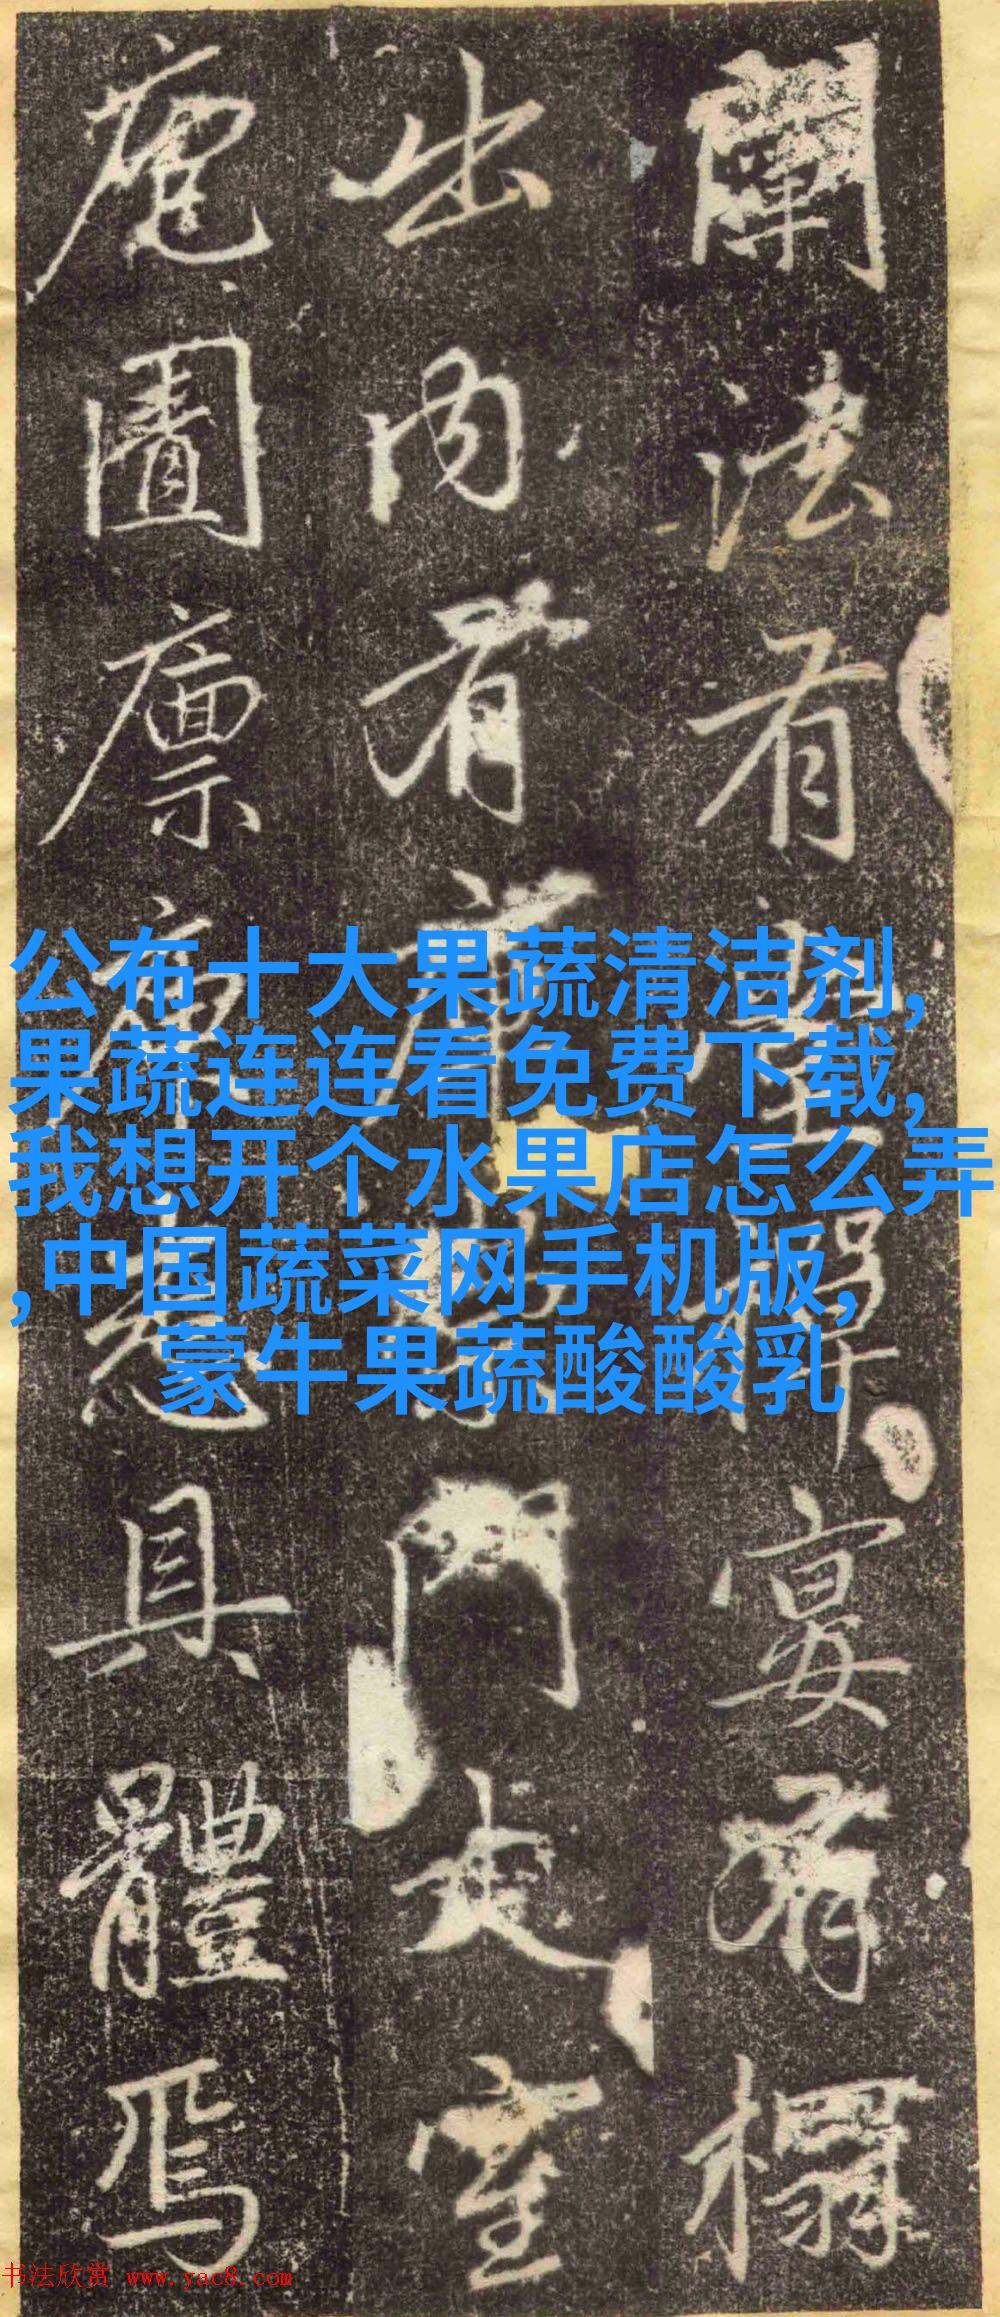 闡法有堂禪宴有榻
出内有門丈室
庖圊廩具體焉
公布十大果蔬清洁剂,
果蔬连连看免费下载,
我想开个水果店怎么弄
,中国蔬菜网手机版,
蒙牛果蔬酸酸乳
书法欣赏 www.yac8.com